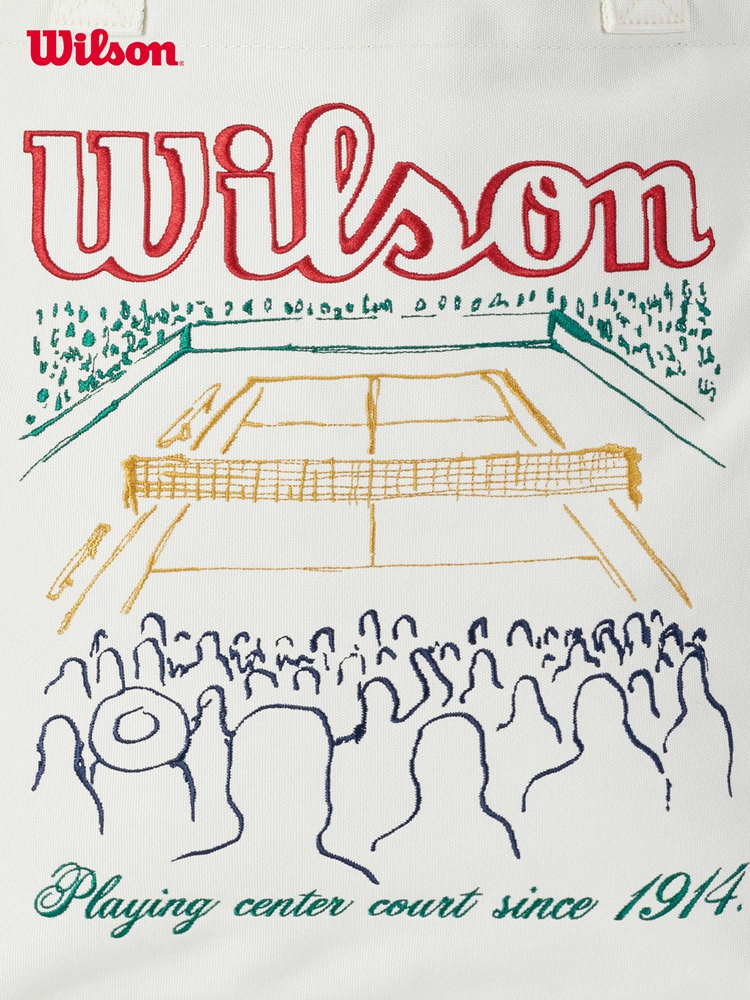 Wilson
Wilson
Playing center court since 1914.